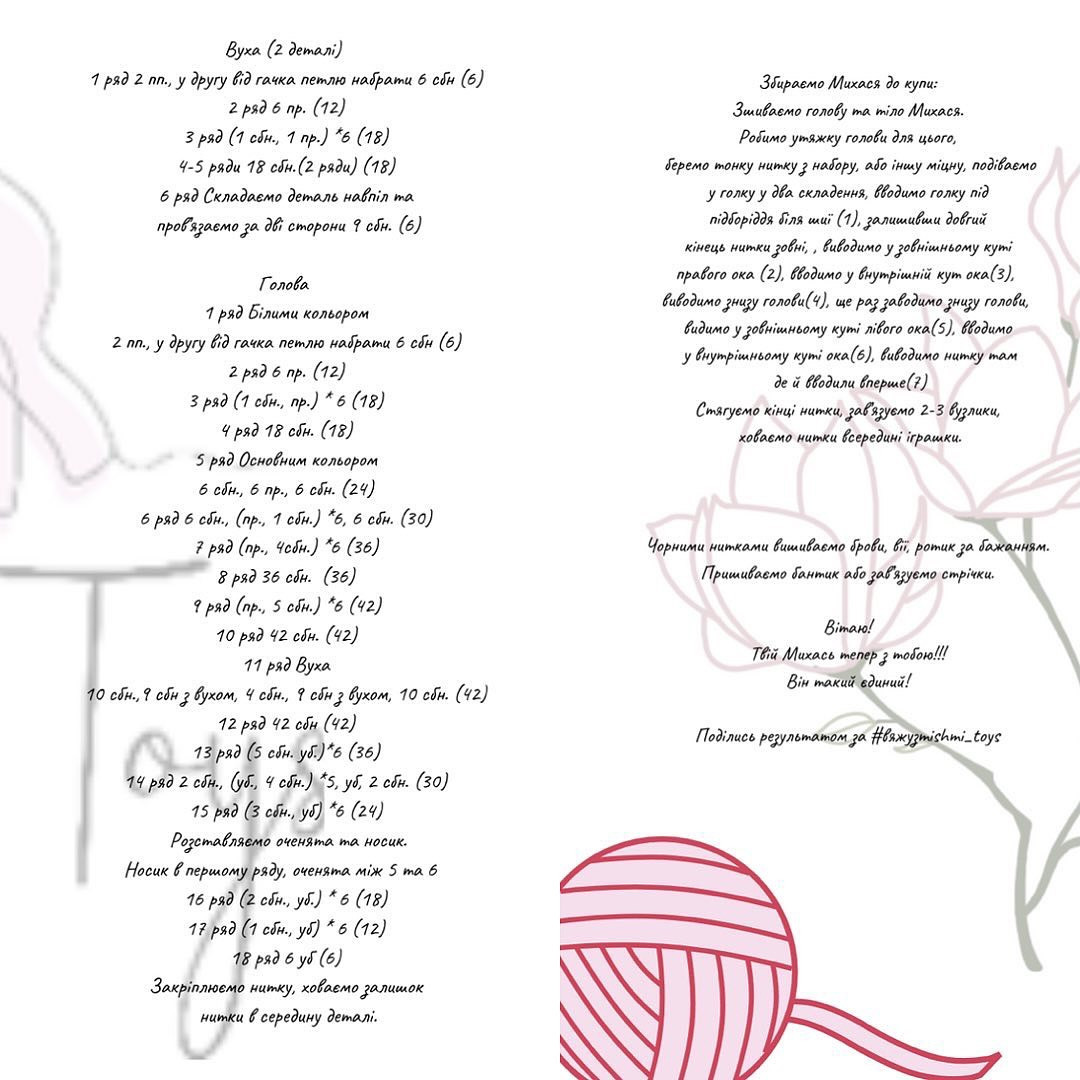 Вуха (2 деталі)
1 ряд 2 пп., у другу від гачка петлю набрати 6 сбн (6)
2 ряд 6 пр. (12)
3 ряд (1 сбн., 1 пр.) *6 (18)
4-5 ряди 18 сбн.(2 ряди) (18)
6 ряд Складаємо деталь навпіл та
пров'язаємо за дві сторони 9 сбн. (6)
Голова
1 ряд Білими кольором
2 пп., у другу від гачка петлю набрати 6 сбн (6)
2 ряд 6 пр. (12)
3 ряд (1 сбн., пр.) * 6 (18)
4 ряд 18 сбн. (18)
5 ряд Основним кольором
6 сбн., 6 пр., 6 сбн. (24)
6 ряд 6 сбн., (пр., 1 сбн.) *6, 6 сбн. (30)
7 ряд (пр., 4сбн.) *6 (36)
8 ряд 36 сбн. (36)
9 ряд (пр., 5 сбн.) *6 (42)
10 ряд 42 сбн. (42)
11 ряд Вуха
10 сбн.,9 сбн з вухом, 4 сбн., 9 сбн з вухом, 10 сбн. (42)
12 ряд 42 сбн (42)
13 ряд (5 сбн. уб.)*6 (36)
14 ряд 2 сбн., (уб., 4 сбн.) *5, уб, 2 сбн. (30)
15 ряд (3 сбн., уб) *6 (24)
Розставляємо оченята та носик.
Носик в першому ряду, оченята між 5 та 6
16 ряд (2 сбн., уб.) * 6 (18)
17 ряд (1 сбн., уб) * 6 (12)
18 ряд 6 уб (6)
Закріплюємо нитку, ховаємо залишок
нитки в середину деталі.
Toys
Збираємо Михася до купи:
Зшиваємо голову та тіло Михася.
Робимо утяжку голови для цього,
беремо тонку нитку з набору, або іншу міцну, подіваємо
у голку у два складення, вводимо голку під
підборіддя біля шиї (1), залишивши довгий
кінець нитки зовні, , виводимо у зовнішньому куті
правого ока (2), вводимо у внутрішній кут ока(3),
виводимо знизу голови(4), ще раз заводимо знизу голови,
видимо у зовнішньому куті лівого ока(5), вводимо
у внутрішньому куті ока(6), виводимо нитку там
де й вводили вперше(7)
Стягуємо кінці нитки, зав'язуємо 2-3 вузлики,
ховаємо нитки всередині іграшки.
Чорними нитками вишиваємо брови, вії, ротик за бажанням.
Пришиваємо бантик або зав'язуємо стрічки.
Вітаю!
Твій Михась тепер з тобою!!!
Він такий єдиний!
Поділись результатом за #вяжузmishmi_toys